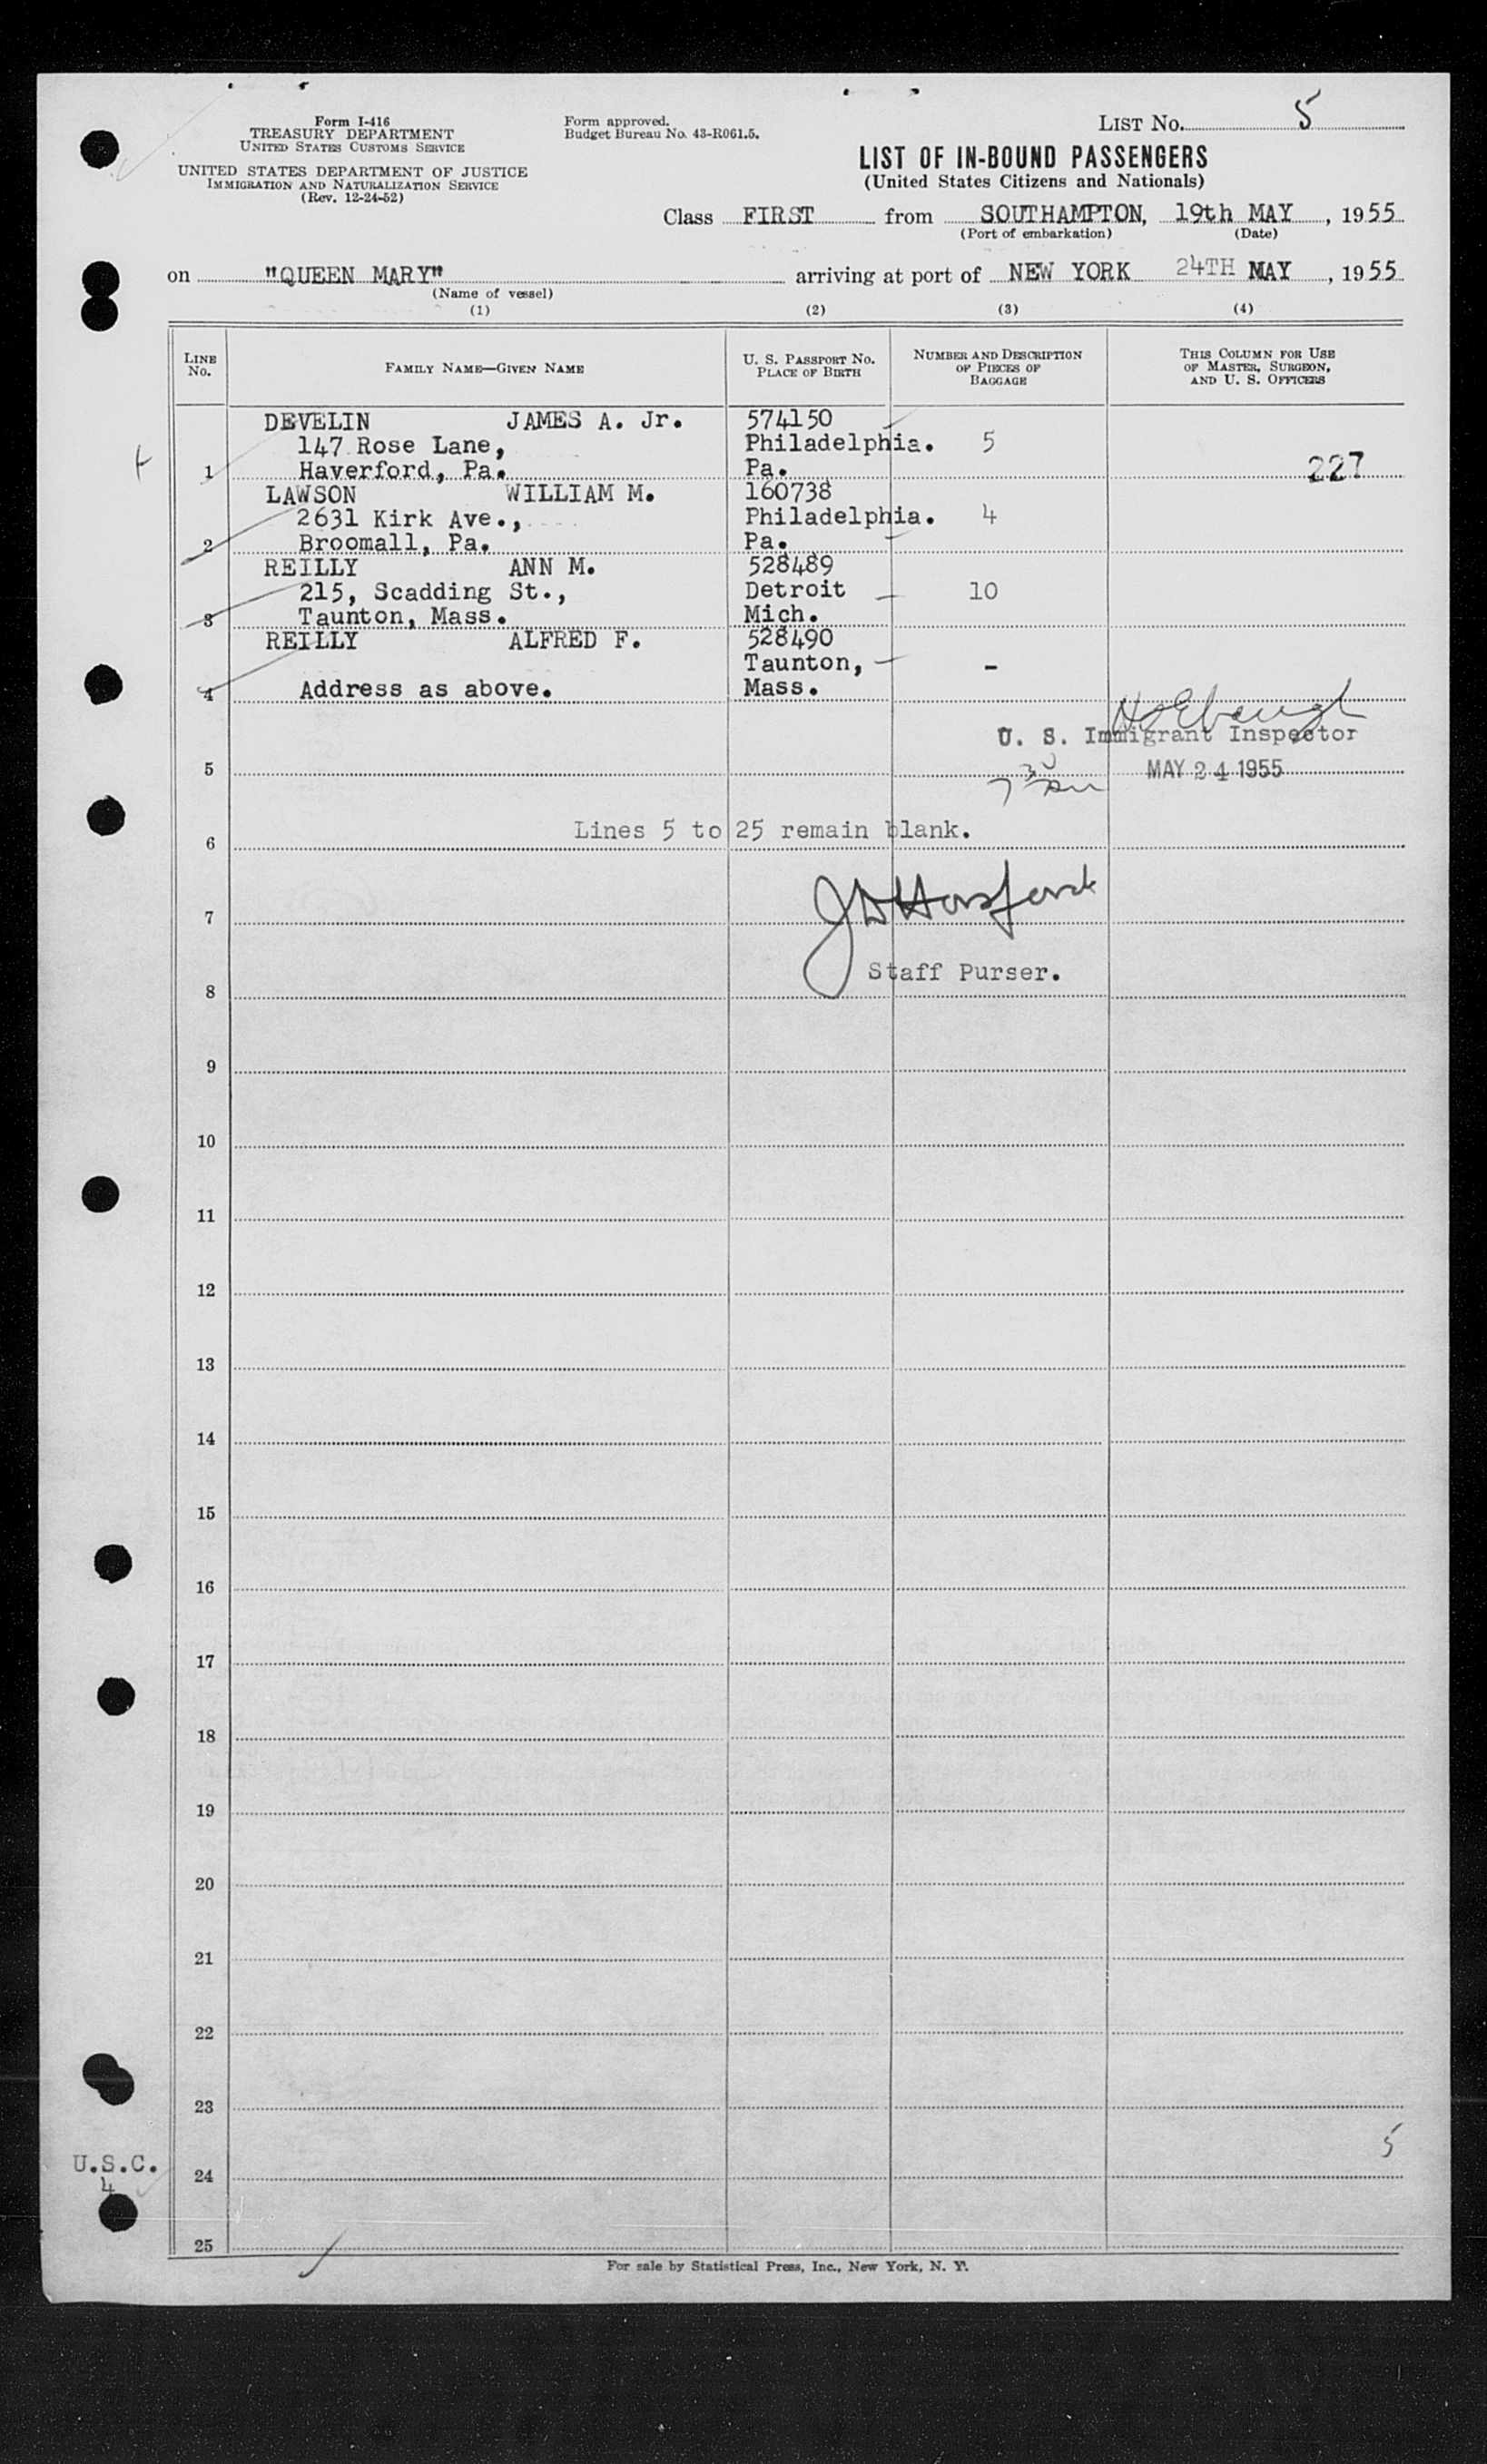 Form I-416
TREASURY DEPARTMENT
UNITED STATES CUSTOMS SERVICE
UNITED STATES DEPARTMENT OF JUSTICE
IMMIGRATION AND NATURALIZATION SERVICE
(Rev. 12-24-52)
Form approved.
Budget Bureau No. 43-R061.5.
LIST No. 5
LIST OF IN-BOUND PASSENGERS
(United States Citizens and Nationals)
Class FIRST from SOUTHAMPTON, 19th MAY, 1955
(Port of embarkation) (Date)
on "QUEEN MARY" arriving at port of NEW YORK 24TH MAY, 1955
(Name of vessel)
(1) (2) (3) (4)
LINE No. FAMILY NAME—GIVEN NAME U. S. PASSPORT No. PLACE OF BIRTH NUMBER AND DESCRIPTION OF PIECES OF BAGGAGE THIS COLUMN FOR USE OF MASTER, SURGEON, AND U. S. OFFICERS
DEVELIN JAMES A. Jr. 574150
147 Rose Lane, Philadelphia. 5
1 Haverford, Pa. Pa. 227
LAWSON WILLIAM M. 160738
2631 Kirk Ave., Philadelphia. 4
2 Broomall, Pa. Pa.
REILLY ANN M. 528489
215, Scadding St., Detroit 10
3 Taunton, Mass. Mich.
REILLY ALFRED F. 528490
Taunton, -
4 Address as above. Mass.
U. S. Immigrant Inspector
5 MAY 24 1955
Lines 5 to 25 remain blank.
6
7
Staff Purser.
8
9
10
11
12
13
14
15
16
17
18
19
20
21
22
23
5
U.S.C.
4
24
25
For sale by Statistical Press, Inc., New York, N. Y.